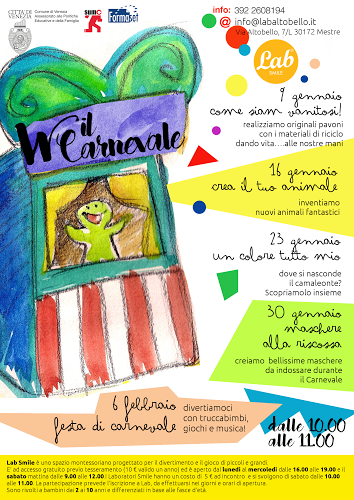 CITTA' DI
VENEZIA
Comune di Venezia
Assessorato alle Politiche
Educative e della Famiglia
SUMO
Formaset
info: 392 2608194
@ info@labaltobello.it
Via Altobello, 7/L 30172 Mestre
Lab
SMILE
W il
Carnevale
9 gennaio
come siam vanitosi!
realizziamo originali pavoni
con i materiali di riciclo
dando vita....alle nostre mani
16 gennaio
crea il tuo animale
inventiamo
nuovi animali fantastici
23 gennaio
un colore tutto mio
dove si nasconde
il camaleonte?
Scopriamolo insieme
30 gennaio
maschere
alla riscossa
creiamo bellissime maschere
da indossare durante
il Carnevale
6 febbraio
festa di carnevale
divertiamoci
con truccabimbi,
giochi e musica!
dalle 10.00
alle 11.00
Lab Smile è uno spazio montessoriano progettato per il divertimento e il gioco di piccoli e grandi.
E' ad accesso gratuito previo tesseramento (10 € valido un anno) ed è aperto dal lunedì al mercoledì dalle 16.00 alle 19.00 e il
sabato mattina dalle 9.00 alle 12.00. I Laboratori Smile hanno un costo di 5 € ad incontro e si svolgono di sabato dalle 10.00
alle 11.00. La partecipazione prevede l'iscrizione a Lab, da effettuarsi nei giorni e orari di apertura.
Sono rivolti a bambini dai 2 ai 10 anni e differenziati in base alle fasce d'età.